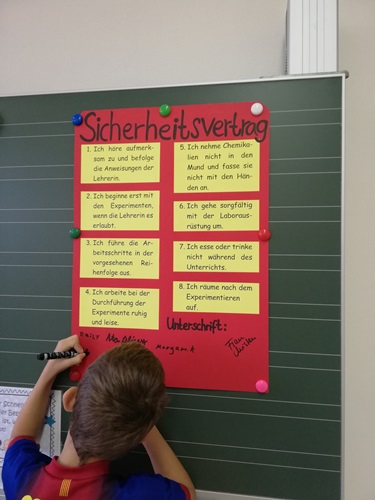 Sicherheitsvertrag
1. Ich höre aufmerk-
sam zu und befolge
die Anweisungen der
Lehrerin.
2. Ich beginne erst mit
den Experimenten,
wenn die Lehrerin es
erlaubt.
3. Ich führe die Ar-
beitsschritte in der
vorgesehenen Rei-
henfolge aus.
4. Ich arbeite bei der
Durchführung der
Experimente ruhig
und leise.
5. Ich nehme Chemika-
lien nicht in den
Mund und fasse sie
nicht mit den Hän-
den an.
6. Ich gehe sorgfältig
mit der Laboraus-
rüstung um.
7. Ich esse oder trinke
nicht während des
Unterrichts.
8. Ich räume nach dem
Experimentieren
auf.
Unterschrift:
Emily
Margaret
Frau